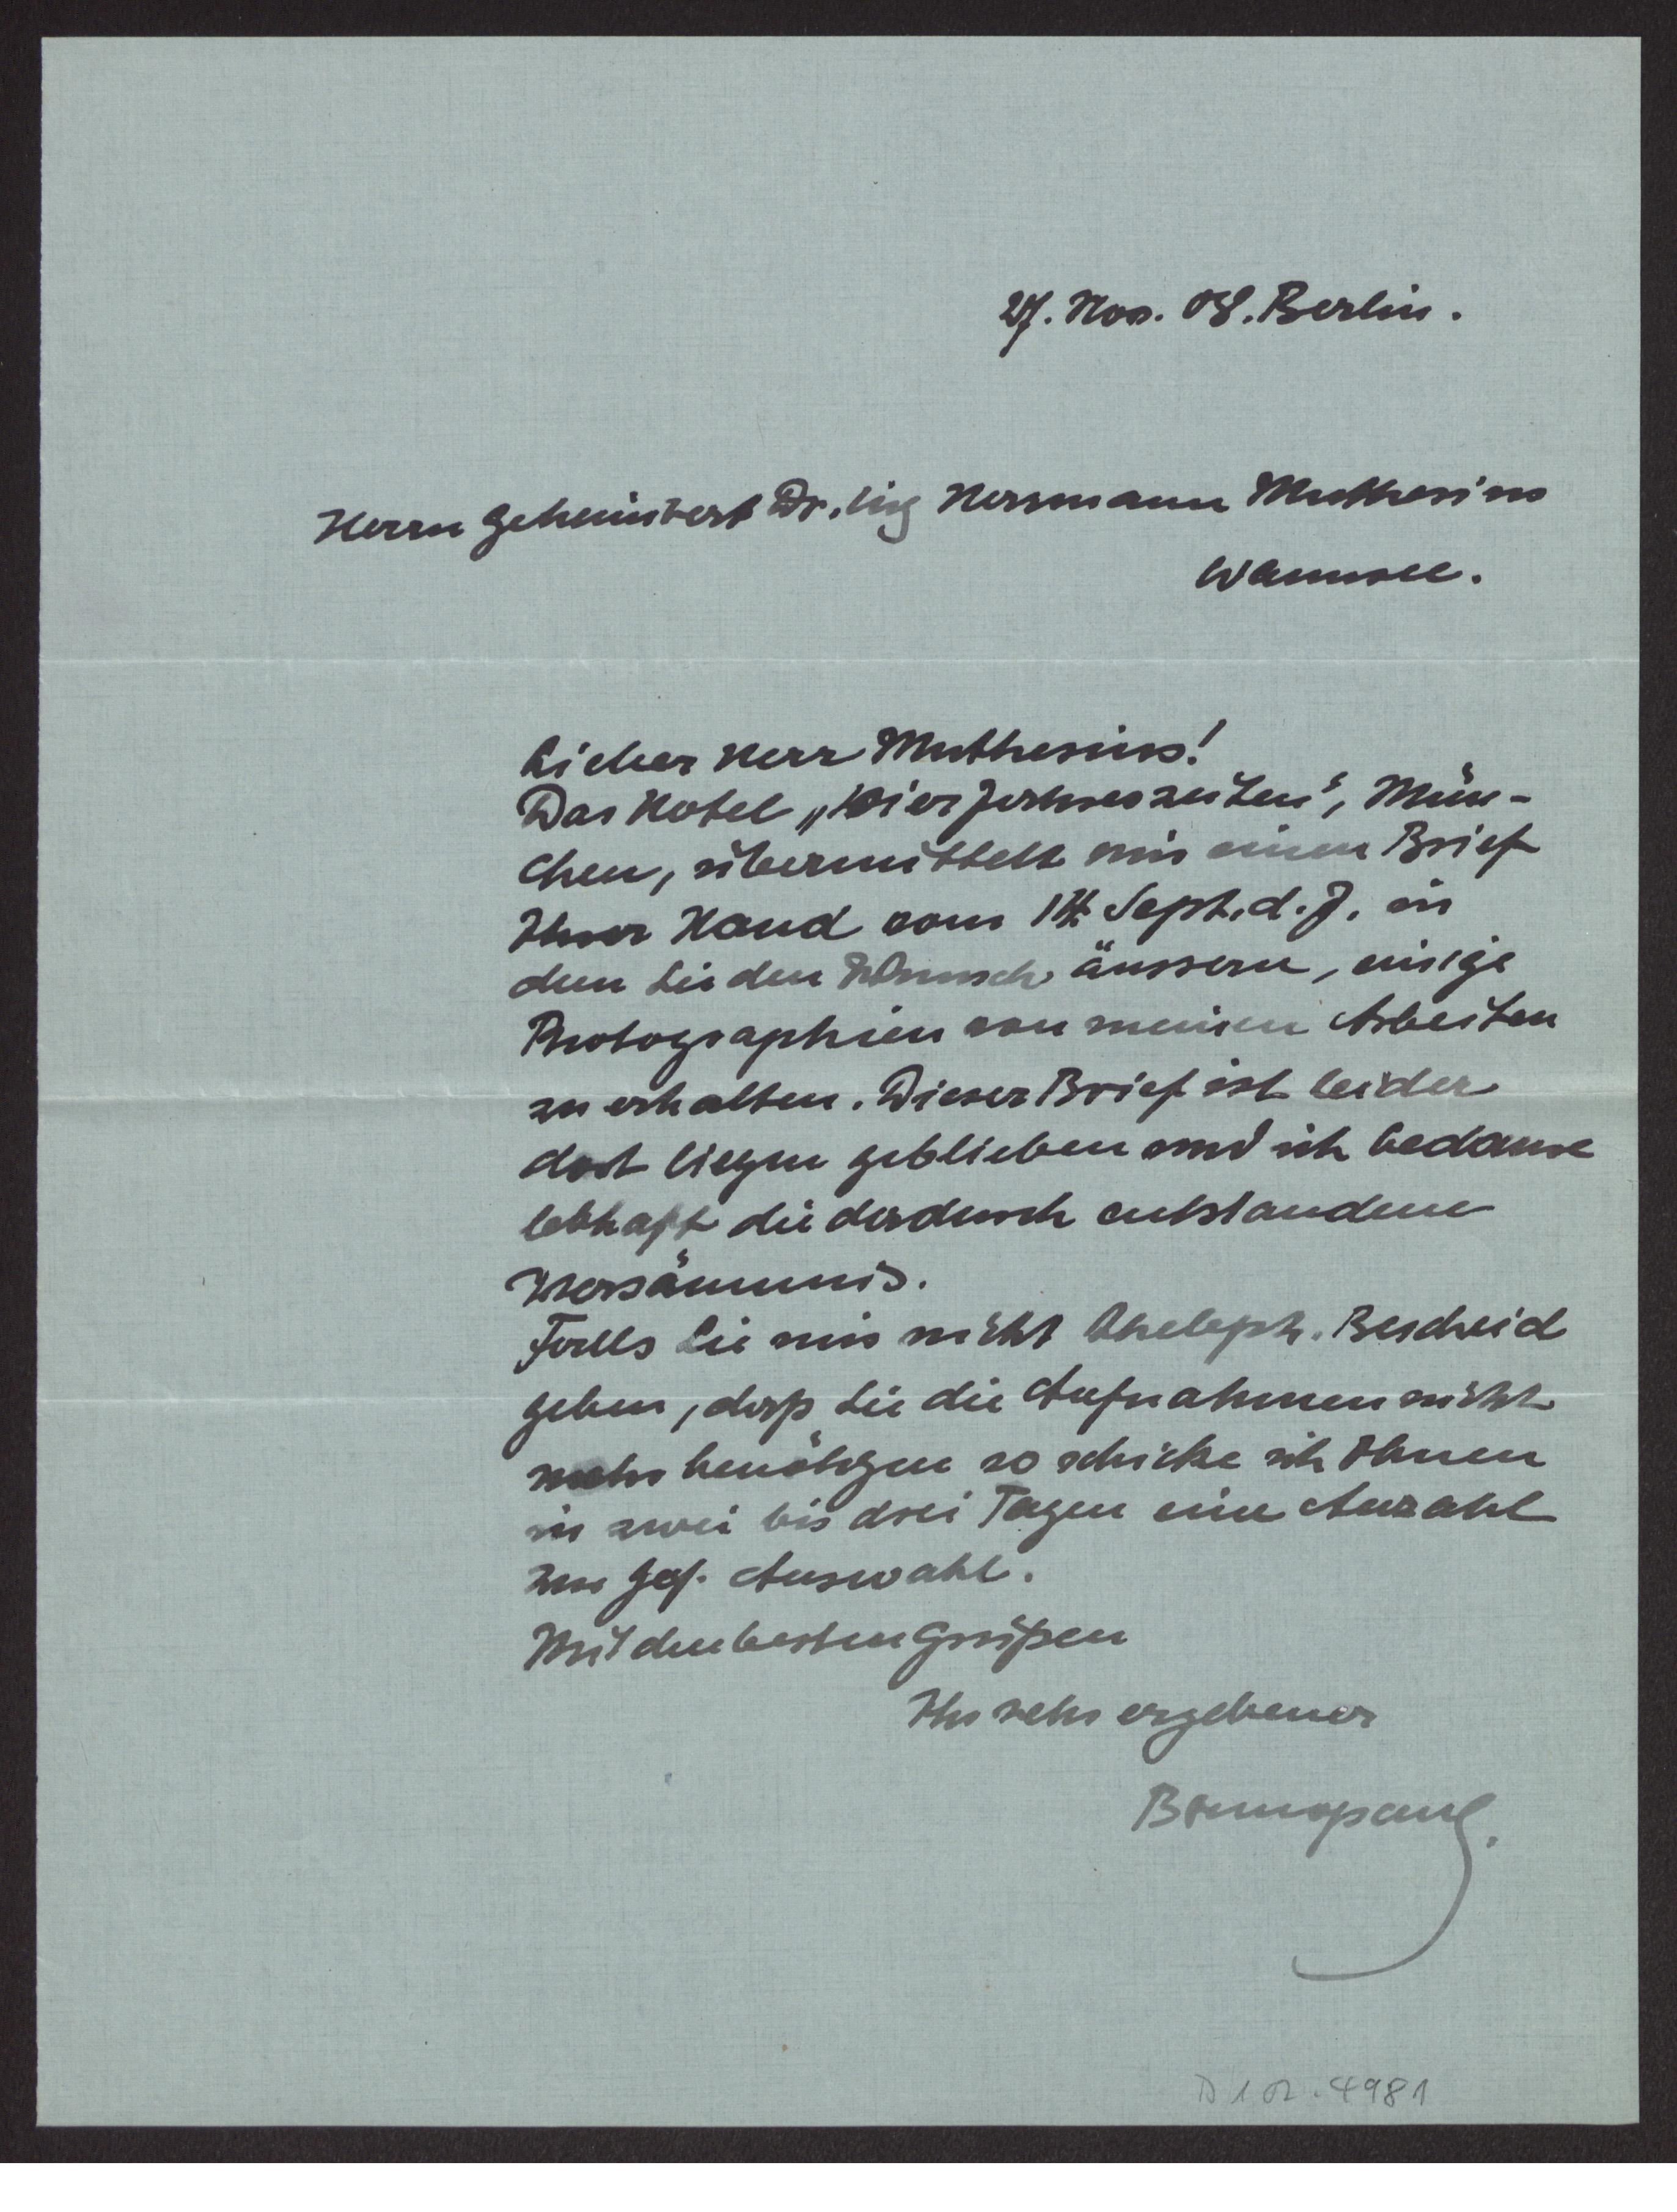 27. Nov. 08. Berlin.
Herrn Geheimbert Dr. Ing Hermann Muthesius
Wannsee.
Lieber Herr Muthesius!
Das Hotel „Vier Jahreszeiten“, Mün-
chen, übermittelt mir einen Brief
Ihrer Hand vom 14. Sept. d. J. in
dem Sie den Wunsch äussern, einige
Photographien von meinen Arbeiten
zu erhalten. Dieser Brief ist leider
dort liegen geblieben und ich bedaure
lebhaft die dadurch entstandene
Versäumnis.
Falls Sie mir nicht theleph. Bescheid
geben, dass Sie die Aufnahmen nicht
mehr benötigen so schicke ich Ihnen
in zwei bis drei Tagen eine Anzahl
zur gef. Auswahl.
Mit den besten Grüßen
Ihr sehr ergebener
Bruno Paul.
D 102.4981